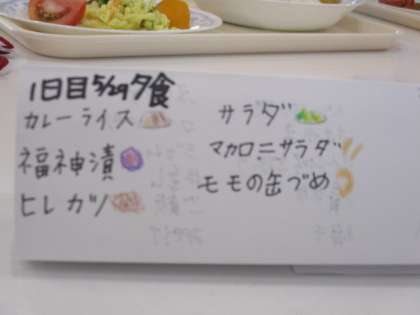 1日目5/29夕食
カレーライス
福神漬
ヒレカツ
サラダ
マカロニサラダ
モモの缶づめ